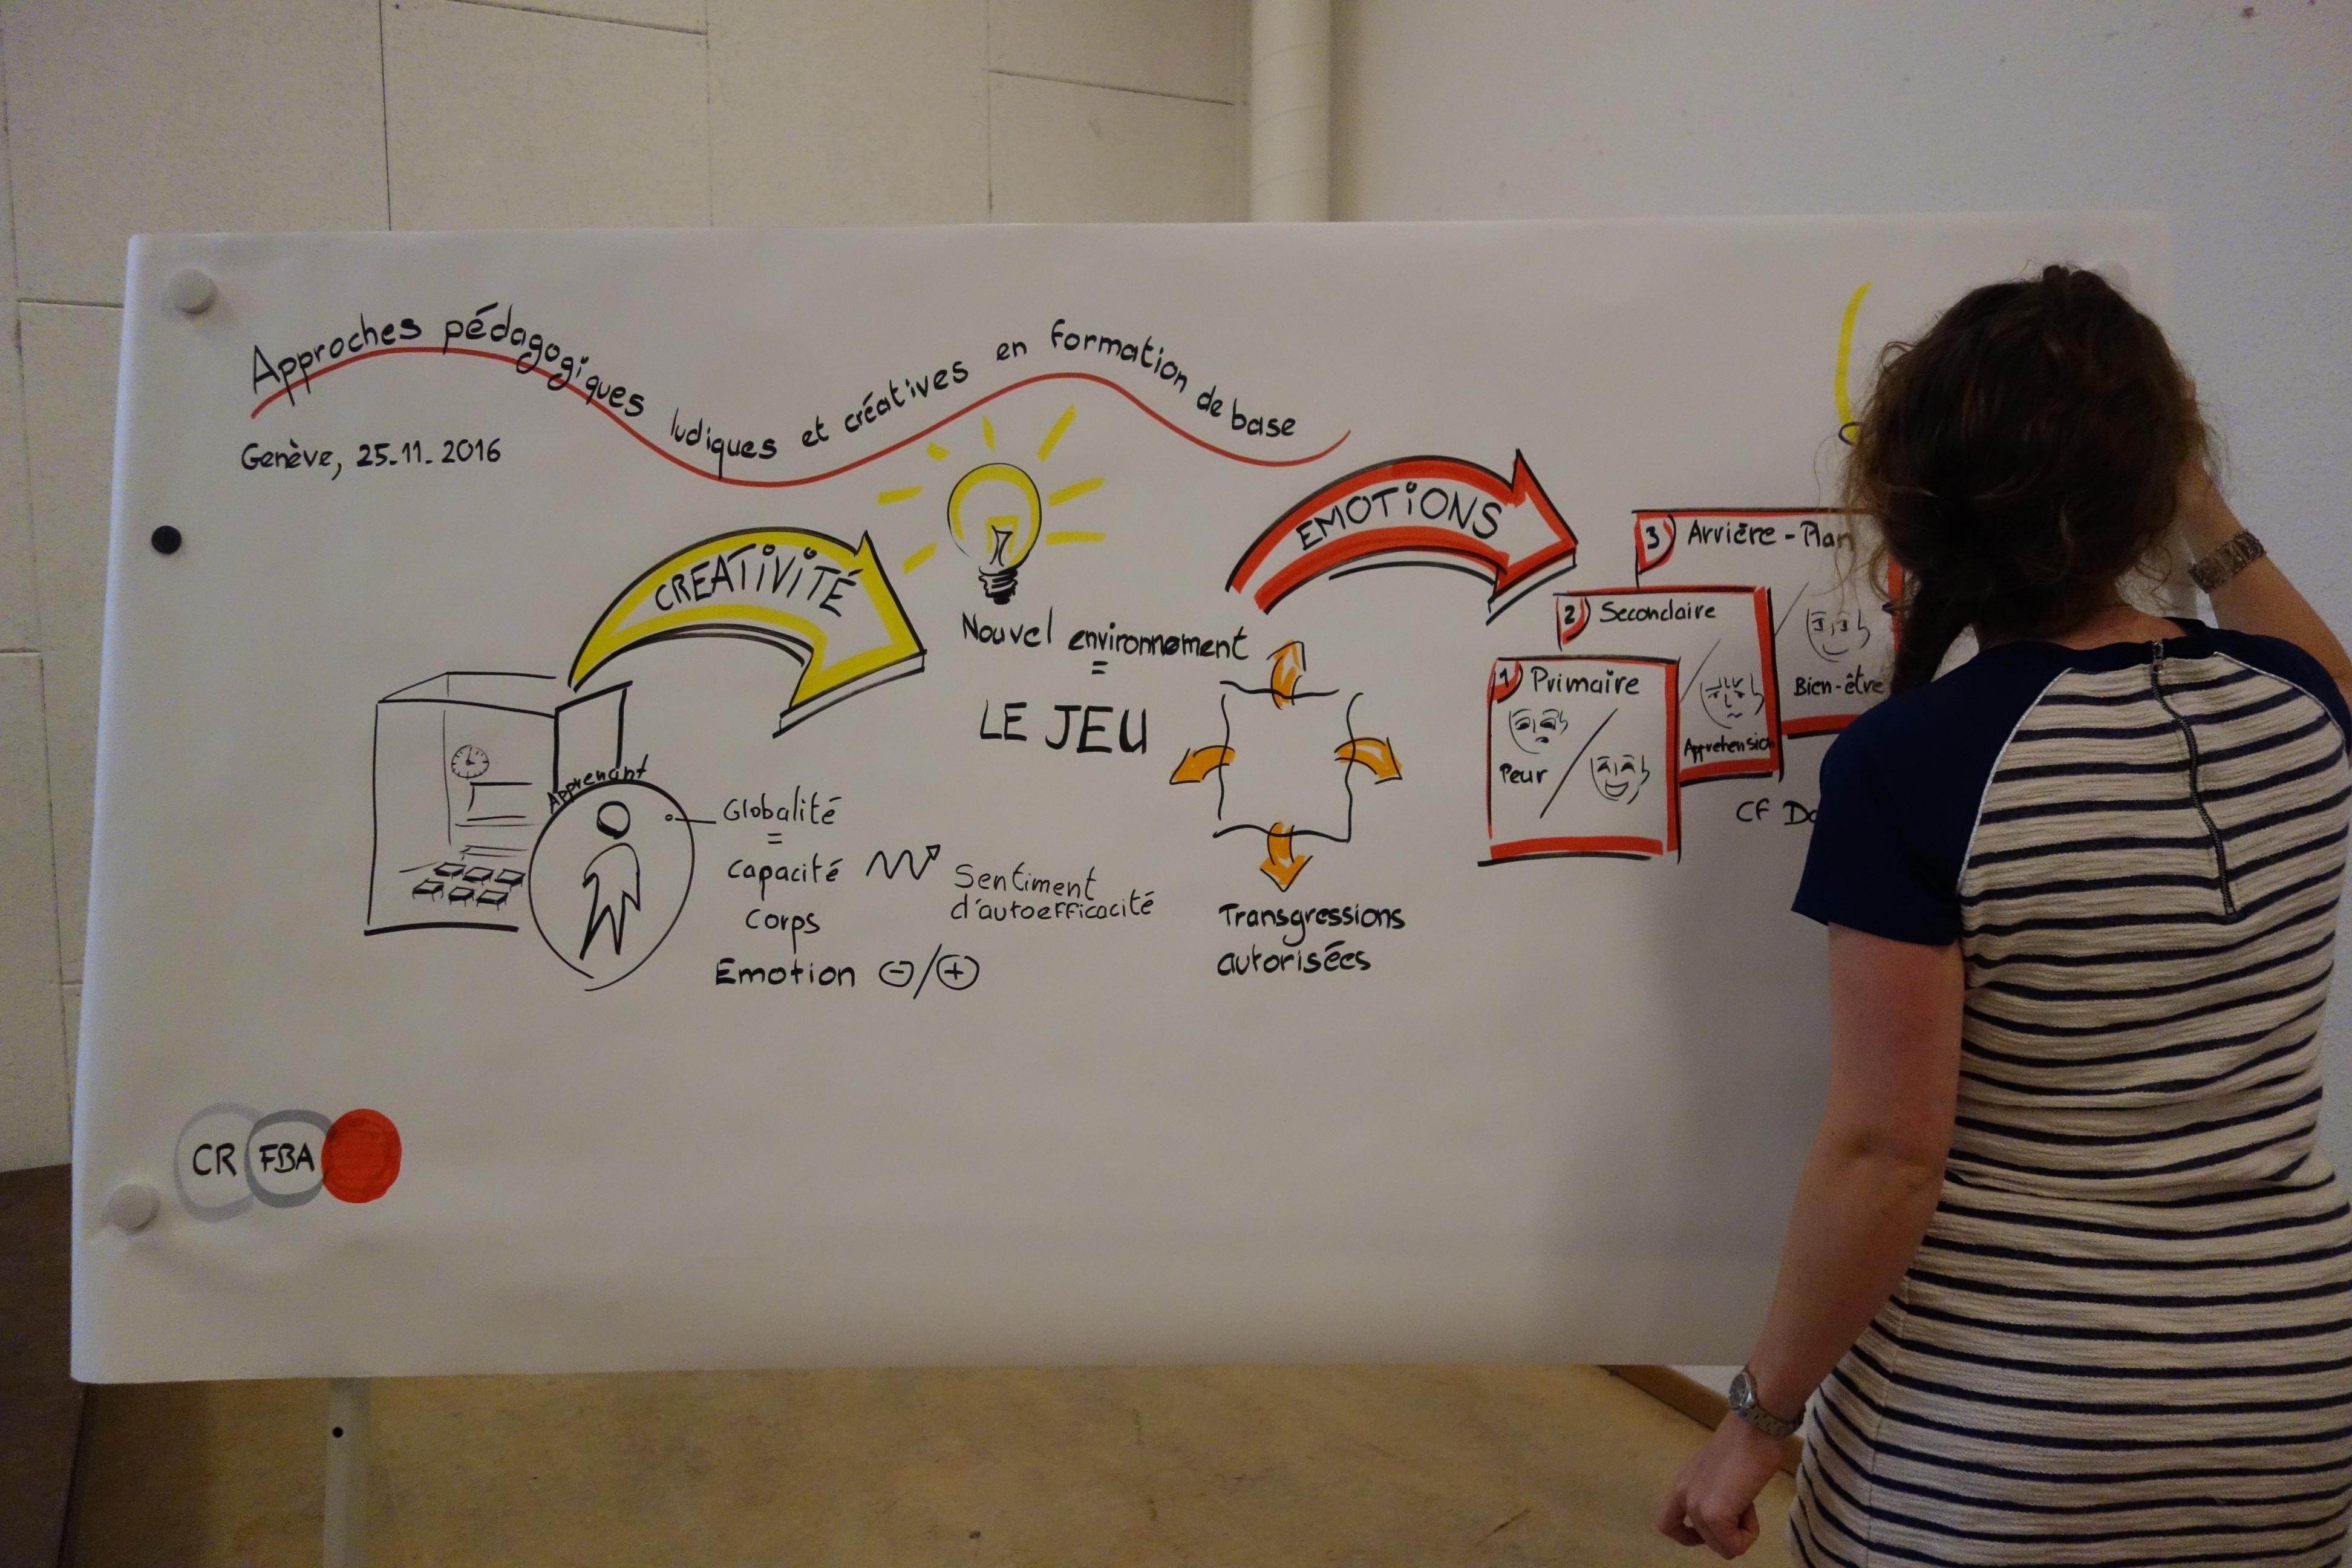 Approches pédagogiques ludiques et créatives en formation de base
Genève, 25.11.2016
CREATIVITÉ
Apprenant
Globalité
=
Capacité
Corps
Emotion ⊖/⊕
Sentiment
d'autoefficacité
Nouvel environnement
=
LE JEU
Transgressions
autorisées
EMOTIONS
1) Primaire
Peur
2) Secondaire
Appréhension
3) Arrière-Plan
Bien-être
CF
CR FBA